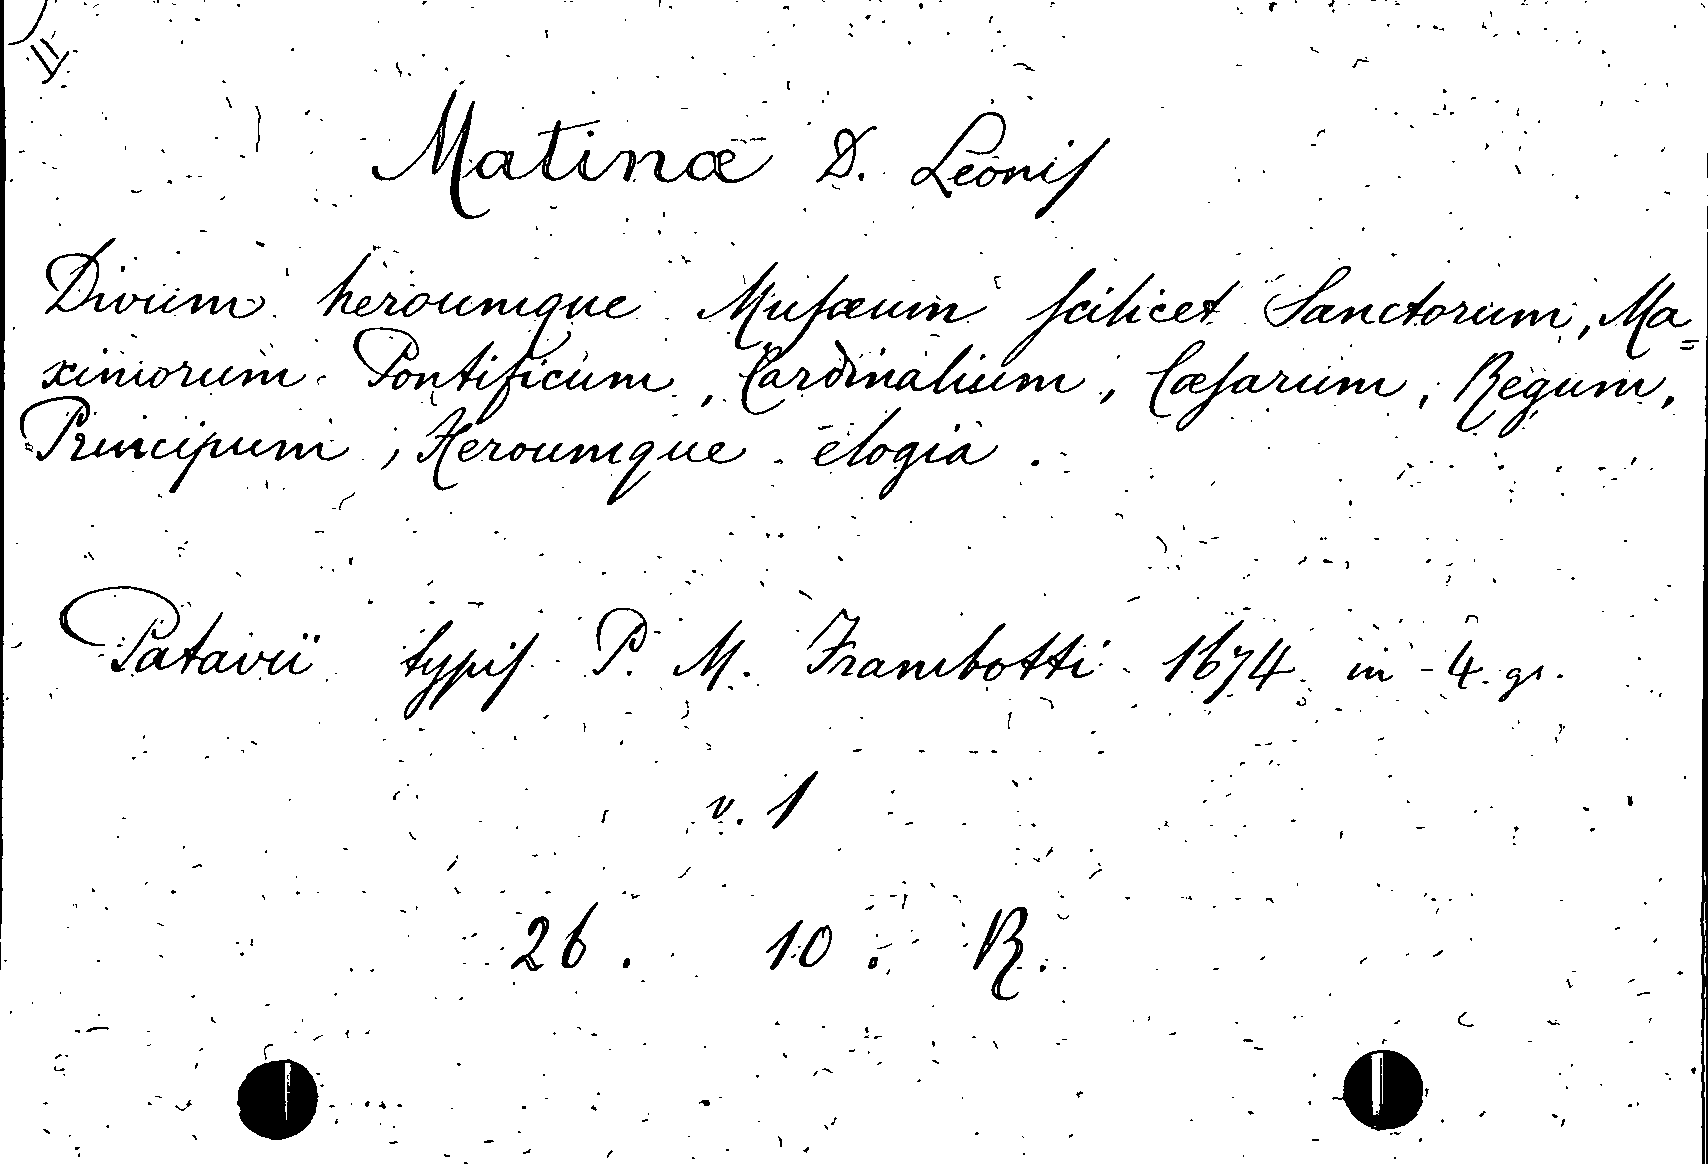 II
Matinæ D. Leonis
Divum heroumque Musæum scilicet Sanctorum, Ma=
ximorum Pontificum, Cardinalium, Cæsarum, Regum,
Principum, Heroumque elogia.
Patavii typis P. M. Frambotti 1674 in 4. gr.
v. 1
26. 10. R.